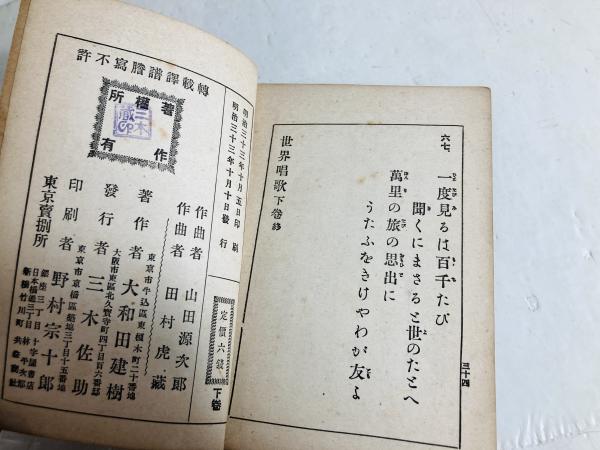 三十四
六七、
一度見るは百千たび
聞くにまさると世のたとへ
萬里の旅の思出に
うたふをきけやわが友よ
世界唱歌下卷終
明治三十三年十月五日印刷
明治三十三年十月十日發行
定價六錢
下卷
作曲者 山田源次郎
作曲者 田村虎藏
東京市牛込區東榎木町二十番地
著作者 大和田建樹
大阪市東區北久寶寺町四丁目百六番邸
發行者 三木佐助
東京市京橋區築地三丁目十五番地
印刷者 野村宗十郎
東京賣捌所
銀座三丁目 十字屋書店
日本橋通三丁目 林平次郎
新橋竹川町 共益商社
轉載譯譜謄寫不許
著作權所有
三木藏印